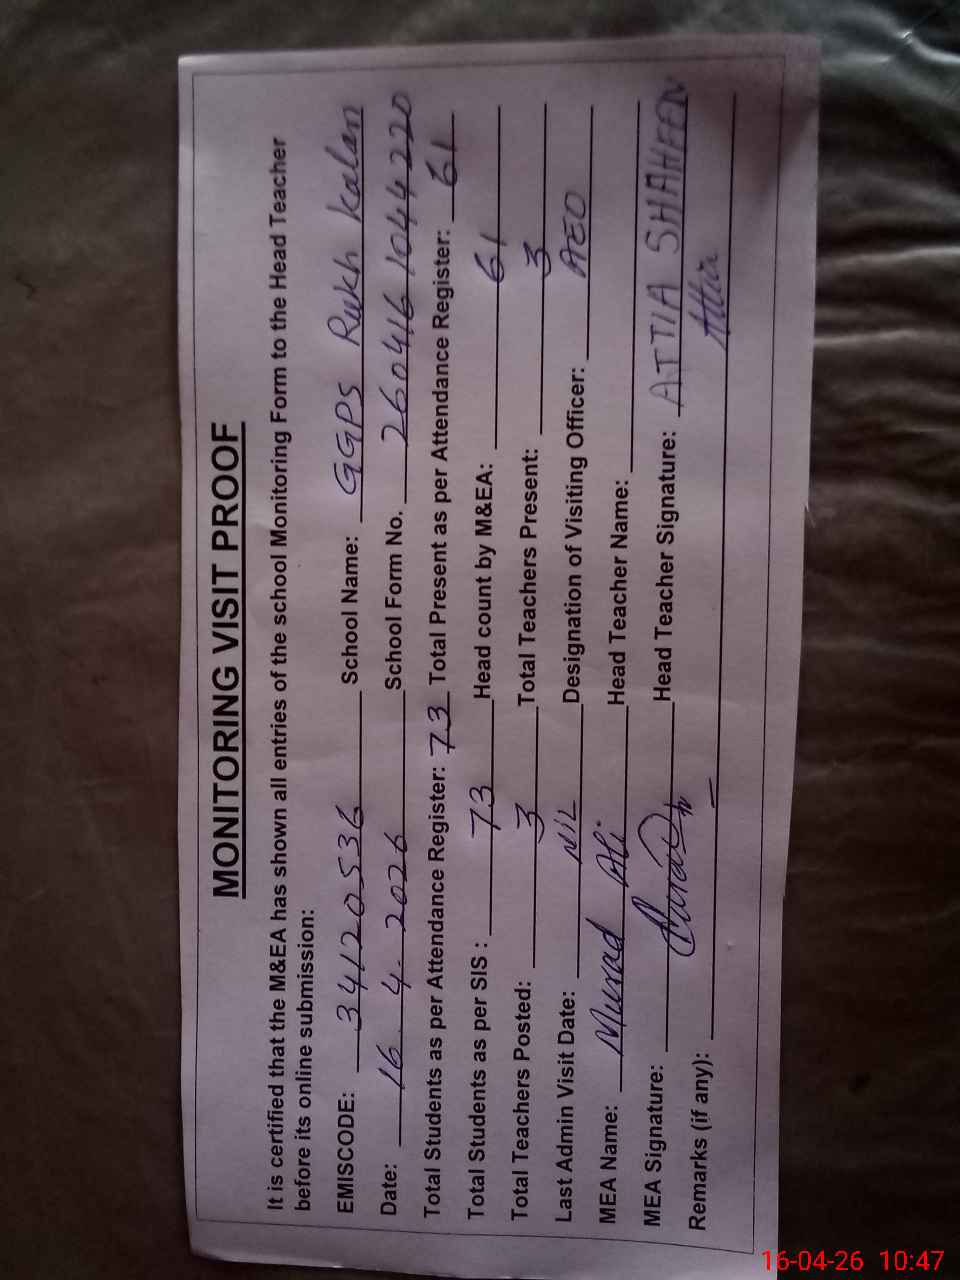 MONITORING VISIT PROOF
It is certified that the M&EA has shown all entries of the school Monitoring Form to the Head Teacher
before its online submission:
EMISCODE: 34120536 School Name: GGPS Rukh kalan
Date: 16-4-2026 School Form No. 260416 1044220
Total Students as per Attendance Register: 73 Total Present as per Attendance Register: 61
Total Students as per SIS : 73 Head count by M&EA: 61
Total Teachers Posted: 3 Total Teachers Present: 3
Last Admin Visit Date: NIL Designation of Visiting Officer: AEO
MEA Name: Murad Ali Head Teacher Name:
MEA Signature: Head Teacher Signature: ATTIA SHAHEEN
Remarks (if any): – Attia
16-04-26 10:47